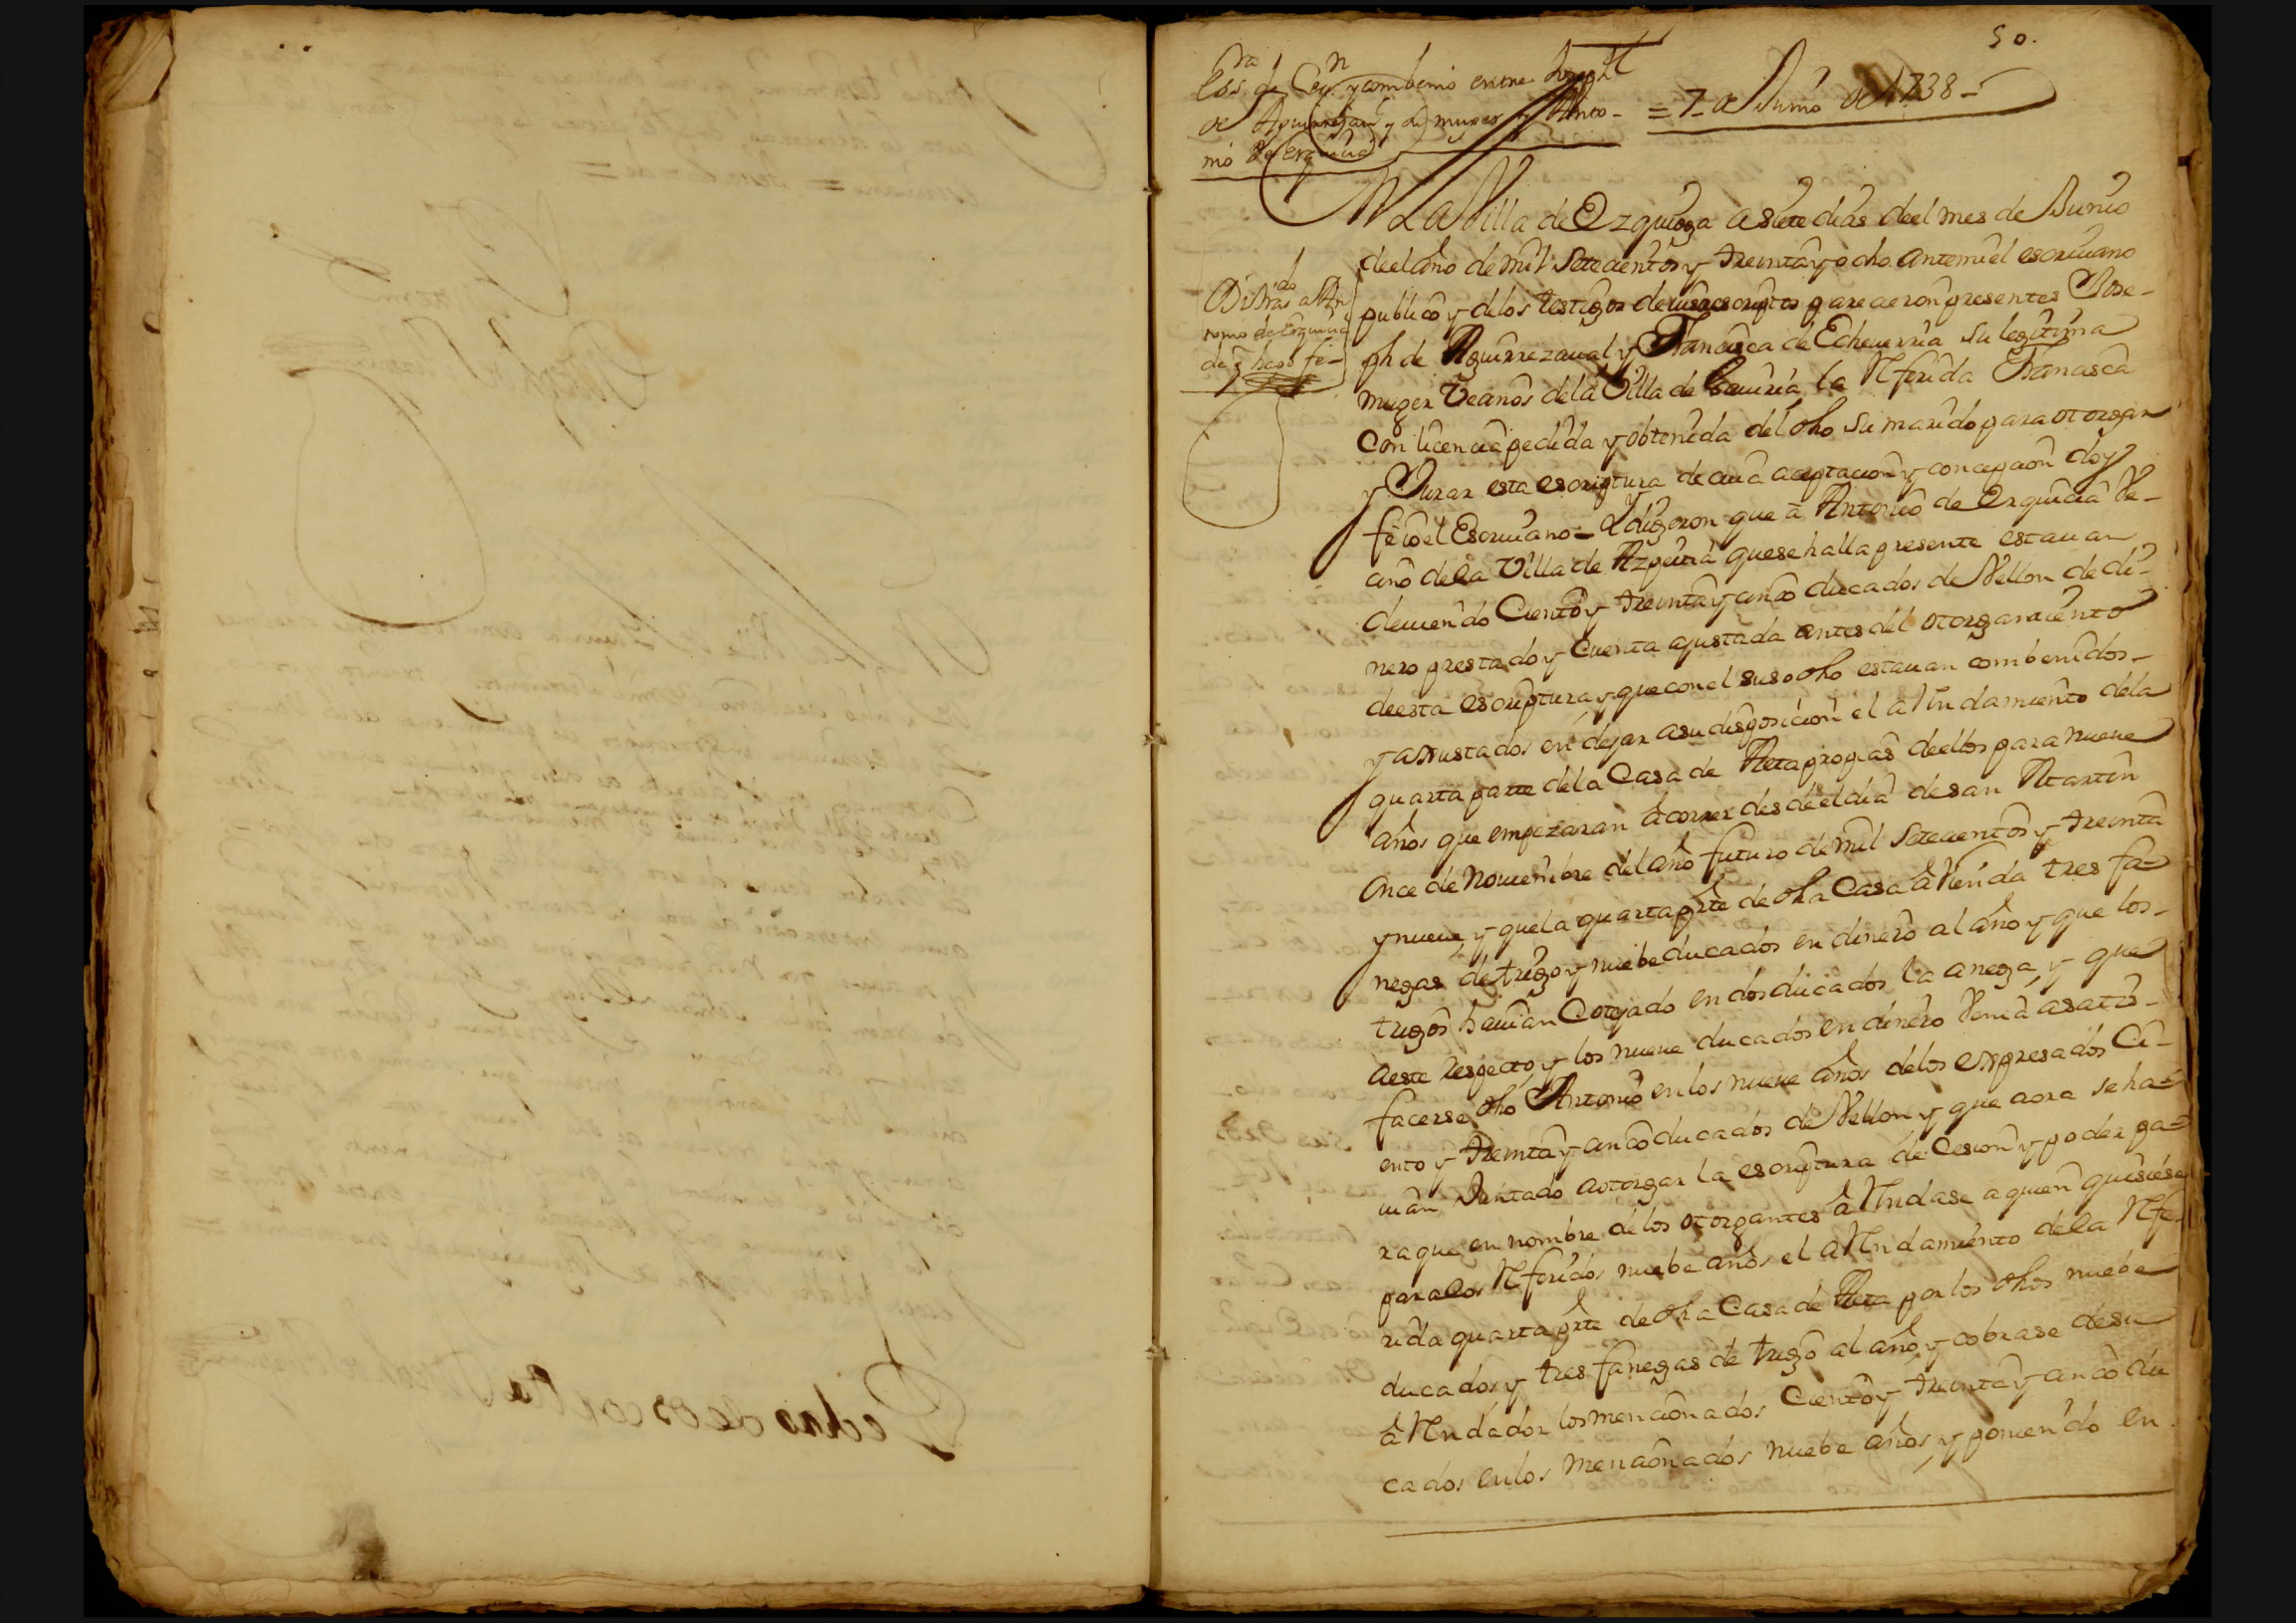 50.
Ess.ra de Ces.n y combenio entre Joseph
de Aguirrezaual y su muger y Anto-
nio de Erquicia
= 7 de Junio de 1738 =
En La Villa de Ezquioga a siete dias deel mes de Junio
deel año de mil setecientos y treinta y ocho ante mi el escriuano
publico y de los testigos de iuso escriptos parecieron presentes Jose-
ph de Aguirrezaual y Francisca de Echeuerria su legitima
muger Vecinos de la Villa de Gauiria, la Referida Francisca
con licencia pedida y obtenida del dho su marido para otorgar
y Jurar esta escriptura de cuia aceptacion y concepcion doy
fe io el Escriuano = Y dijeron que a Antonio de Erquicia Ve-
cino de la Villa de Azpeitia que se halla presente estauan
deuiendo Ciento y treinta y cinco ducados de Vellon de di-
nero prestado y Cuenta ajustada antes del otorgamiento
de esta escriptura y que con el suso dho estauan combenidos
y ajustados en dejar a su disposicion el aRendamiento de la
quarta parte de la Casa de Reta propias de ellos para nueue
años que empezaran a correr desde el dia de san Martin
Once de Nouiembre del año futuro de mil setecientos y treinta
y nueue, y que la quarta parte de dha Casa a Renda tres fa-
negas de trigo y nuebe ducados en dinero al año y que los
trigos hauian Cotejado en dos ducados la anega, y que
a este respecto y los nueue ducados en dinero Venia a satis-
facerse dho Antonio en los nueue años de los expresados Ci-
ento y treinta y cinco ducados de Vellon y que aora se ha-
uian Juntado a otorgar la escriptura de Cesion y poder pa-
ra que en nombre de los otorgantes aRendase a quien quisiese
para los Referidos nuebe años el aRendamiento de la Refe-
rida quarta parte de dha Casa de Reta por los dhos nuebe
ducados y tres fanegas de trigo al año y cobrase de su
aRendador los mencionados Ciento y treinta y cinco du
cados en los mencionados nuebe años, y poniendo en
Di tras.do a An
tonio de Erquicia
de q hago fe